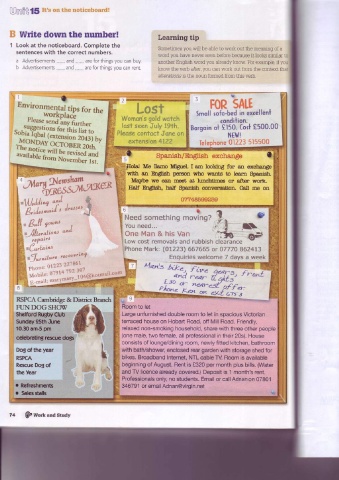 Unit 15 It's on the noticeboard!
B Write down the number!
1 Look at the noticeboard. Complete the
sentences with the correct numbers.
a Advertisements ___ and ___ are for things you can buy.
b Advertisements ___ and ___ are for things you can rent.
Learning tip
Sometimes you will be able to work out the meaning of a
word you have never seen before because it looks similar to
another English word you already know. For example, if you
know the verb
you can work out from the context that
is the noun formed from this verb.
1
Environmental tips for the
workplace
Please send any further
suggestions for this list to
Subia Iqbal (extension 2043) by
MONDAY OCTOBER 20th.
The notice will be revised and
available from November 1st.
2
Lost
Woman's gold watch
last seen July 19th.
Please contact Jane on
extension 4122
3
FOR SALE
Small sofa-bed in excellent
condition.
Bargain at £150. Cost £500.00
NEW!
Telephone 01223 515500
4
Mary Newsham
DRESSMAKER
Wedding and
Bridesmaid's dresses
Ball gowns
Alterations and
repairs
Curtains
Furniture recovering
Phone: 01223 527861
Mobile: 07914 792 367
Spanish/English exchange
Hola! Me llamo Miguel. I am looking for an exchange
with an English person who wants to learn Spanish.
Maybe we can meet at lunchtimes or after work.
Half English, half Spanish conversation. Call me on
6
Need something moving?
You need...
One Man & his Van
Low cost removals and rubbish clearance
Phone Mark: (01223) 667665 or 07770 862413
Enquiries welcome 7 days a week
7
Men's bike, five gears, front
and rear lights
£30 or nearest offer.
Phone Ken on ext 6753
RSPCA Cambridge & District Branch
FUN DOG SHOW
Shelford Rugby Club
Sunday 05th June
10.30 am-5 pm
celebrating rescue dogs
Dog of the year
RSPCA
Rescue Dog of
the Year
Refreshments
Sales stalls
Room to let
Large unfurnished double room to let in spacious Victorian
terraced house on Hobart Road, off Mill Road. Friendly,
relaxed non-smoking household, share with three other people
(one male, two female, all professional in their 20s). House
consists of lounge/dining room, newly fitted kitchen, bathroom
with bath/shower, enclosed rear garden with storage shed for
bikes. Broadband Internet, NTL cable TV. Room is available
beginning of August. Rent is £320 per month plus bills. (Water
and TV licence already covered.) Deposit is 1 month's rent.
Professionals only, no students. Email or call Adnan on 07801
346791 or email
74 Work and Study